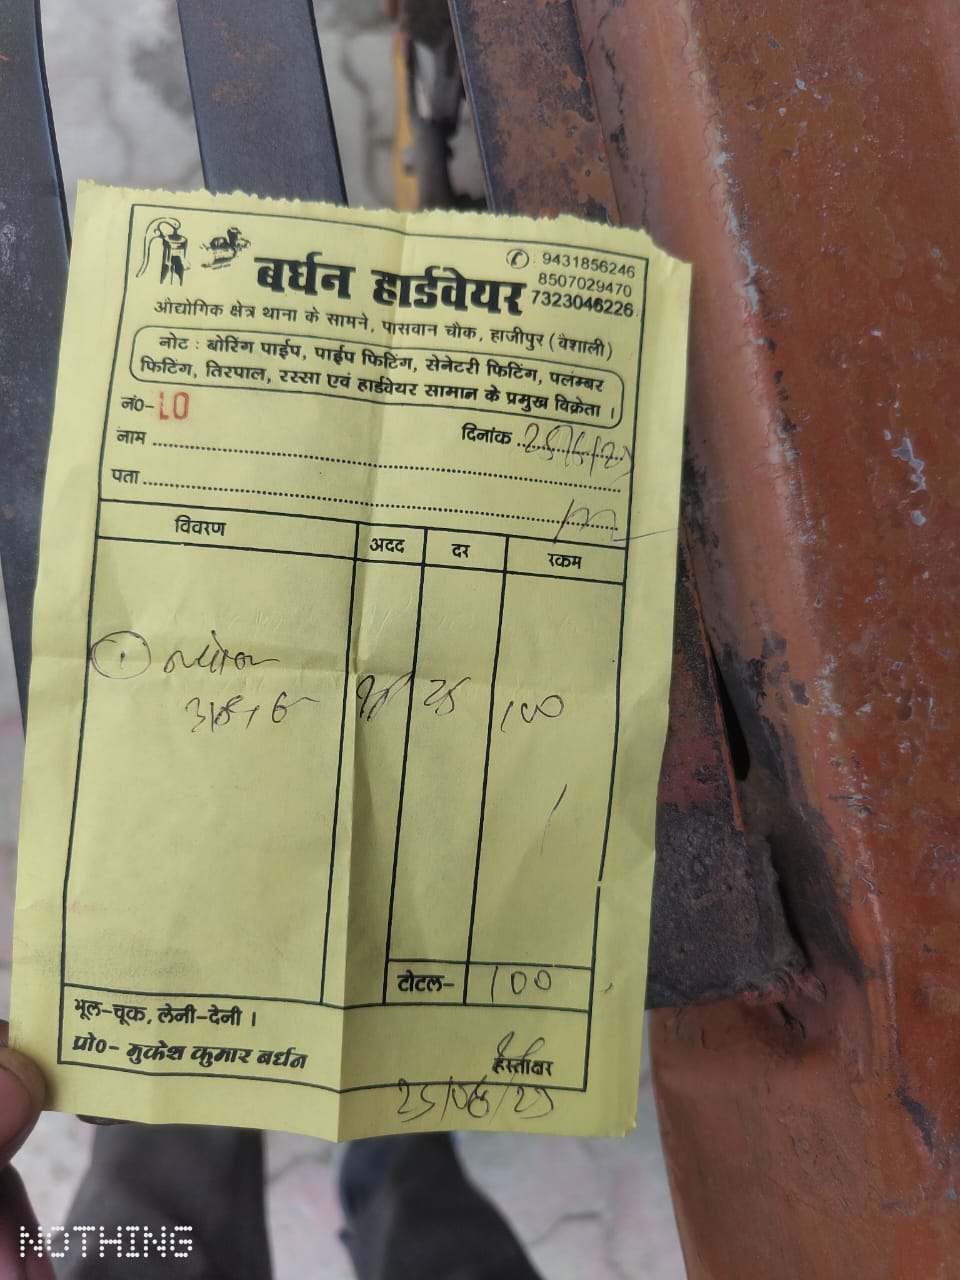 बर्धन हार्डवेयर
✆ : 9431856246
8507029470
7323046226
औद्योगिक क्षेत्र थाना के सामने, पासवान चौक, हाजीपुर (वैशाली)
नोट : बोरिंग पाईप, पाईप फिटिंग, सेनेटरी फिटिंग, पलंम्बर
फिटिंग, तिरपाल, रस्सा एवं हार्डवेयर सामान के प्रमुख विक्रेता ।
नं0- LO
नाम
दिनांक
पता
विवरण अदद दर रकम
1
100
टोटल- 100
भूल-चूक, लेनी-देनी ।
प्रो0- मुकेश कुमार बर्धन
हस्ताक्षर
NOTHING